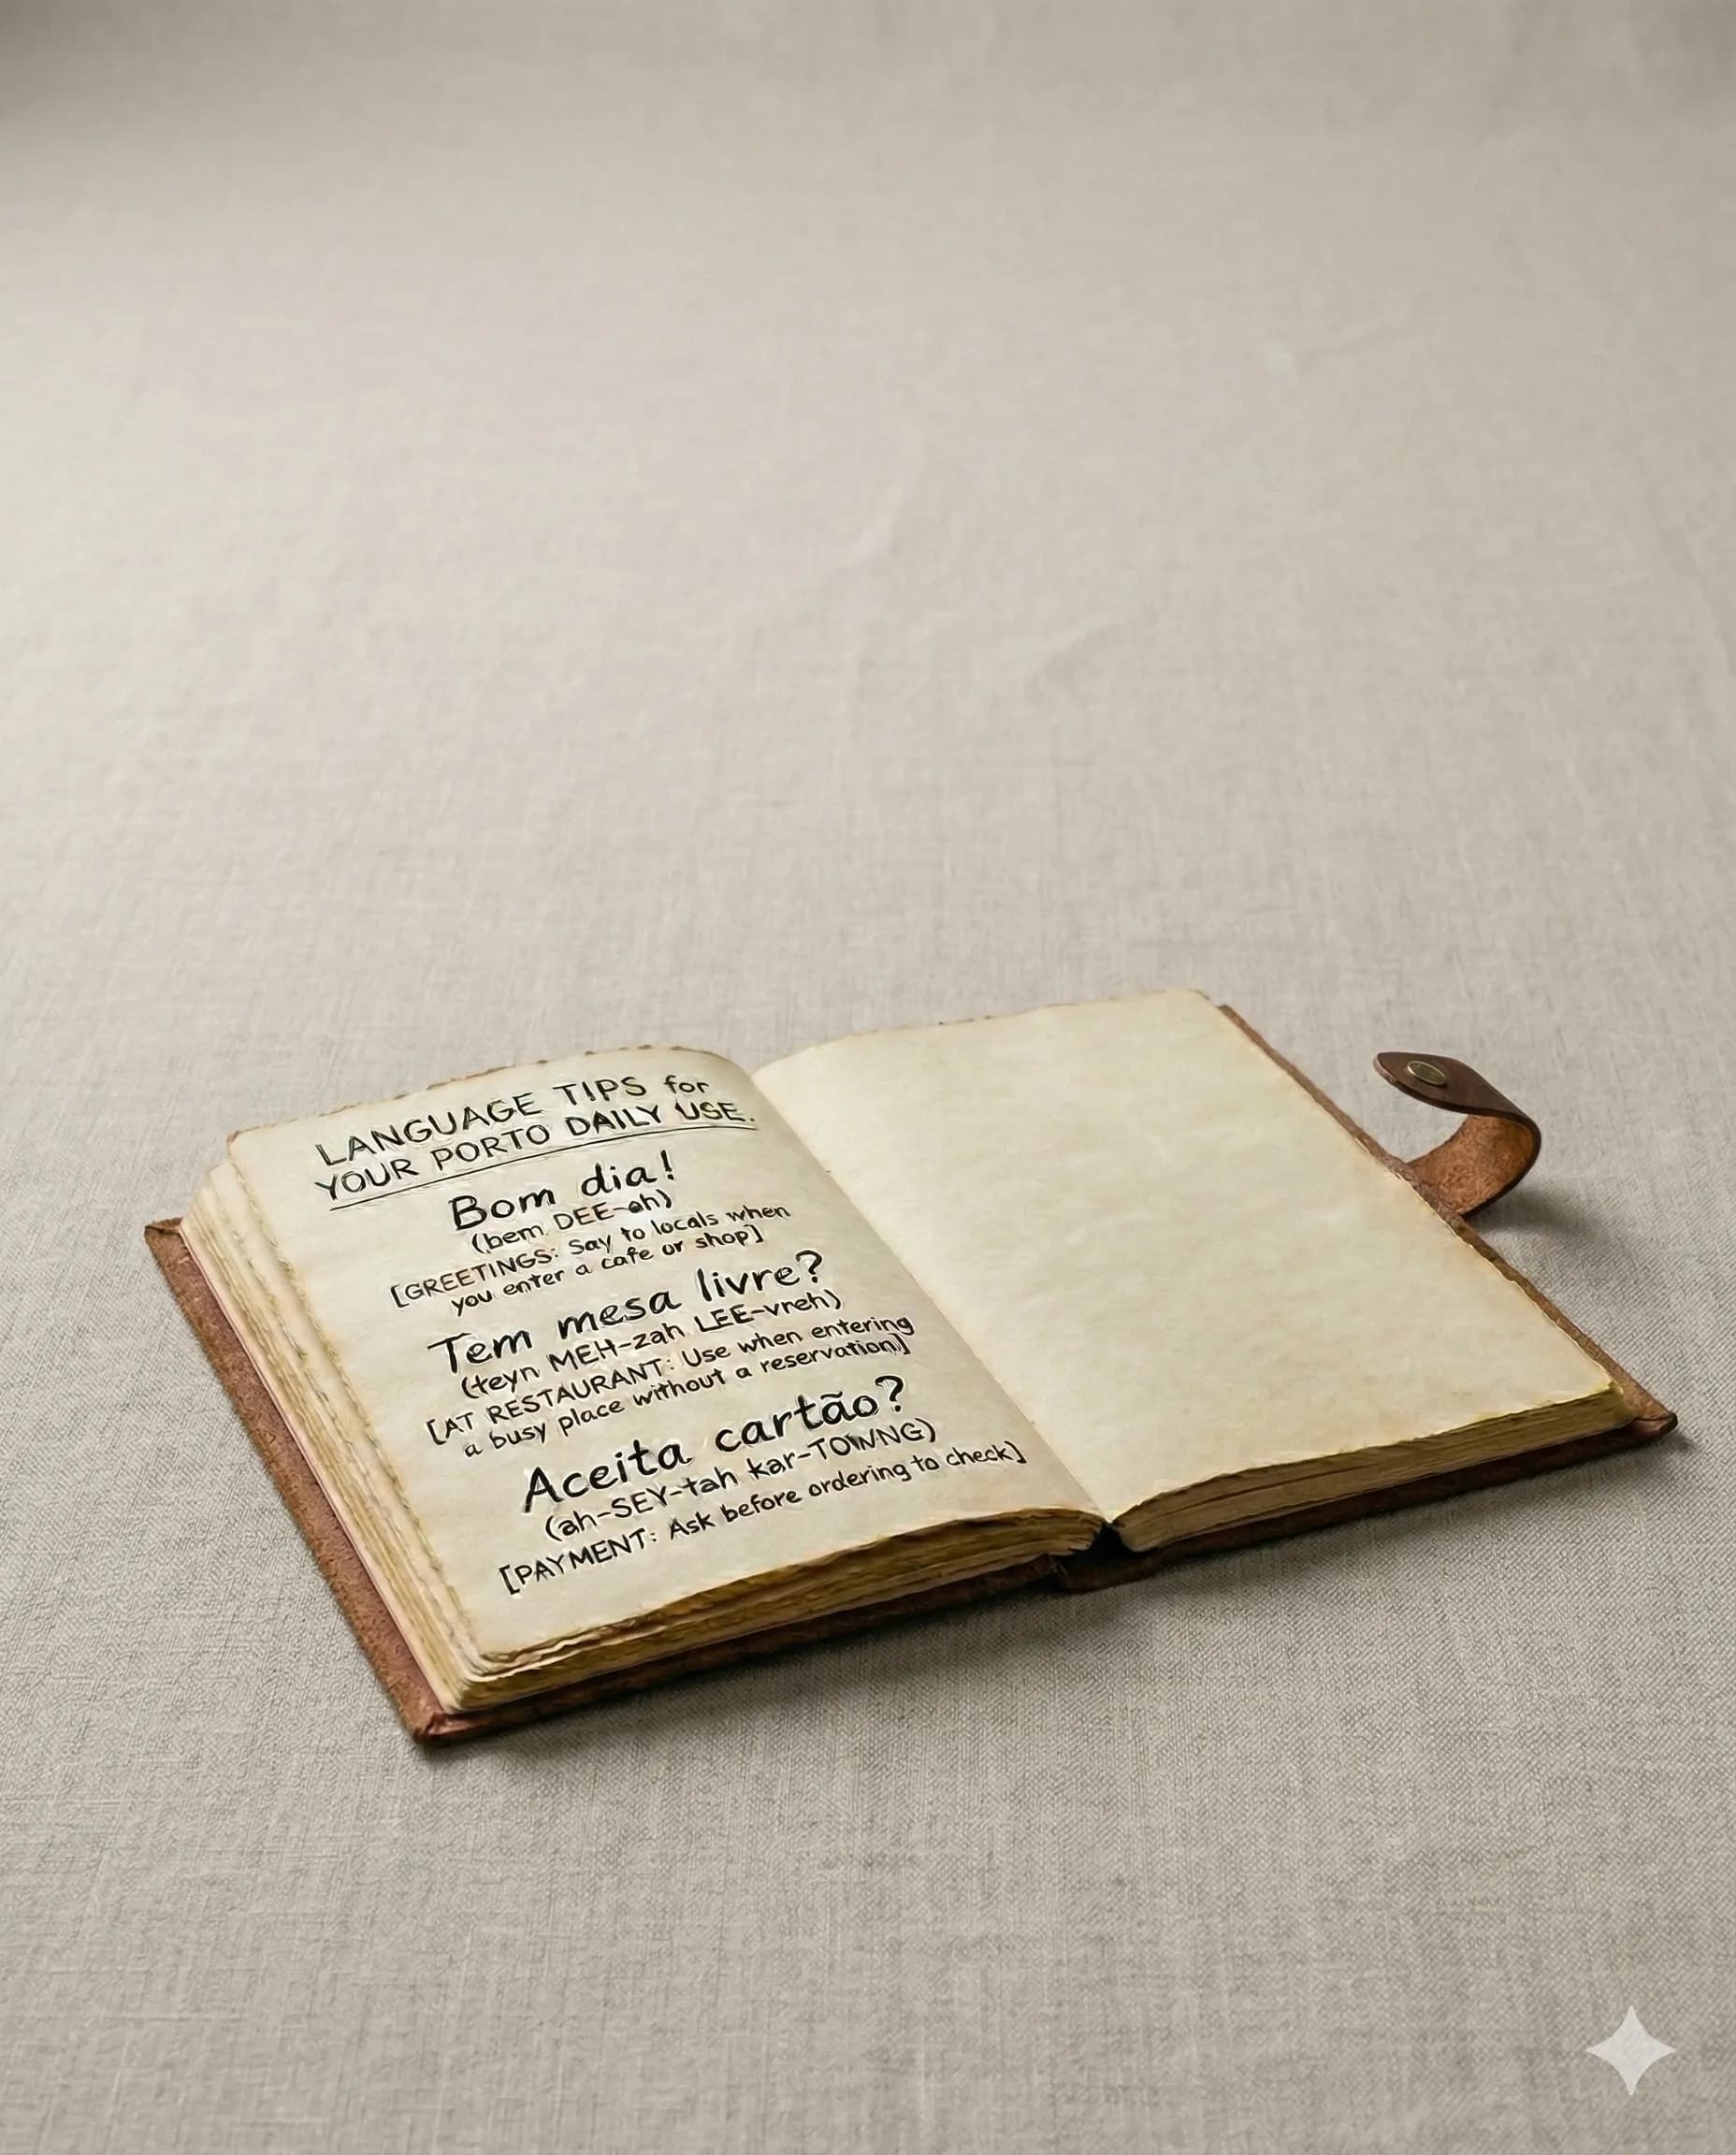 LANGUAGE TIPS for
YOUR PORTO DAILY USE.
Bom dia!
(bem DEE-ah)
[GREETINGS: Say to locals when
you enter a cafe or shop]
Tem mesa livre?
(teyn MEH-zah LEE-vreh)
[AT RESTAURANT: Use when entering
a busy place without a reservation]
Aceita cartão?
(ah-SEY-tah kar-TOWNG)
[PAYMENT: Ask before ordering to check]